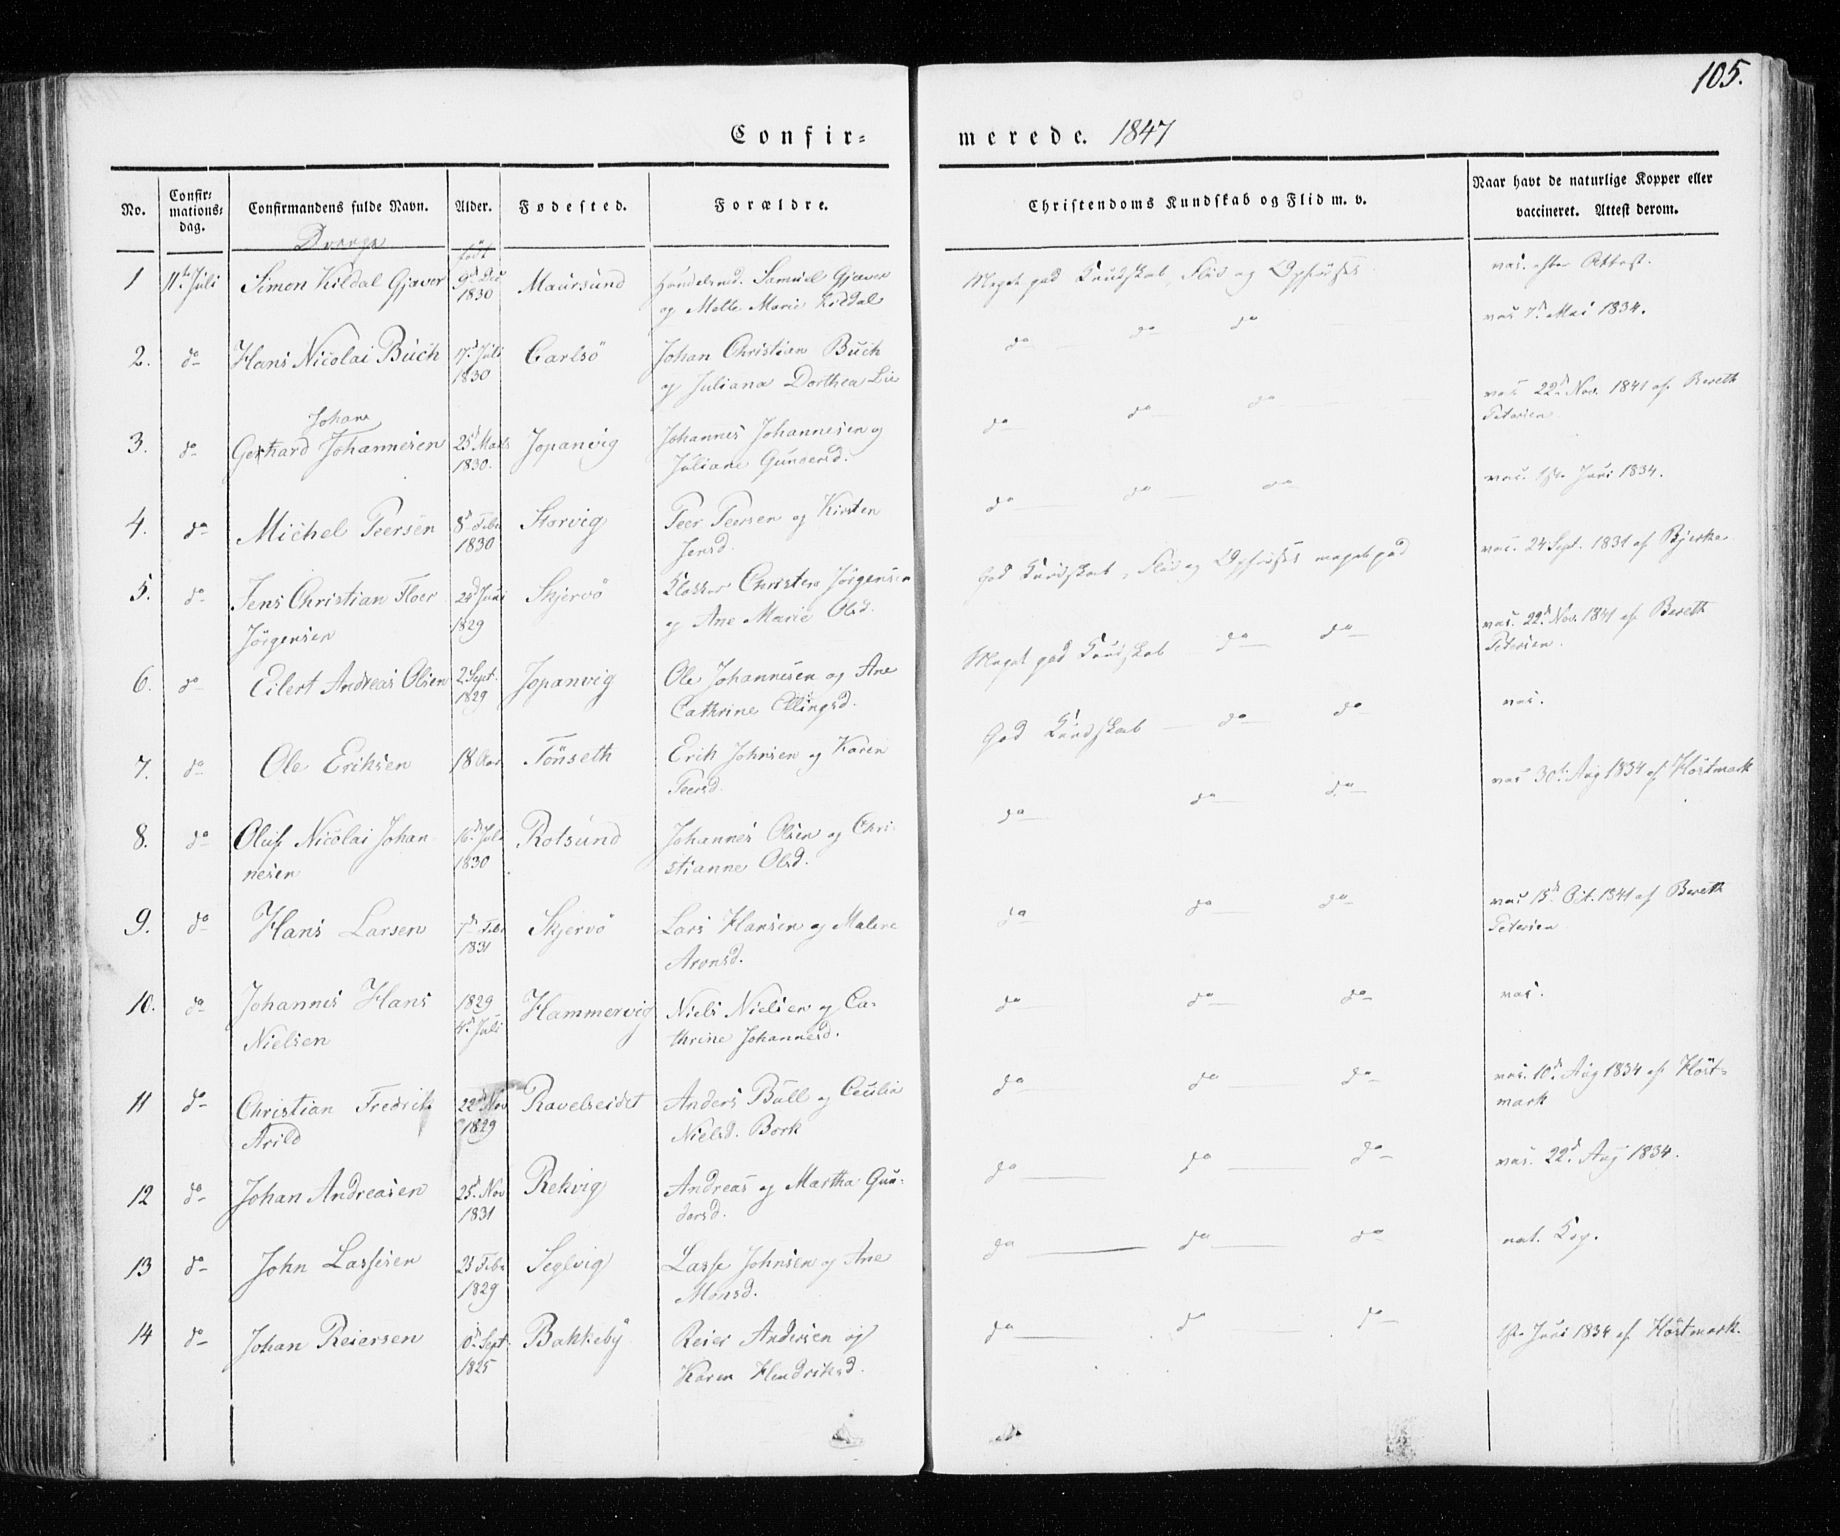 105.
Confir= merede. 1847
No. Confir= mations= dag. Confirmandens fulde Navn. Alder. Fødested. Forældre. Christendoms Kundskab og Flid m. v. Naar havt de naturlige Kopper eller vaccineret. Attest derom.
Drenge
født
1 11te Juli Simon Kildal Gjæver 9d Dec Maursund Handelsmd. Samuel Gjæver Meget god Kundskab, Flid og Opførsel vac. efter Attest.
1830 og Mette Marie Kildal
2. do Hans Nicolai Buch 17d Juli Carlsö Johan Christian Buch do do do vac 7d Mai 1834.
1830 og Juliana Dorthea Lie
Johan
3. do Gerhard Johannesen 25d Marts Jopanvig Johannes Johannesen og do do do vac 22d Nov. 1841 af Bereth
1830. Juliane Gundersd. Petersen
4. do Michel Peersen 8d Febr Storvig Peer Peersen og Kirsten do do do vac. 1ste Juni 1834.
1830 Jensd.
5. do Jens Christian Floer Juni Skjervö Klokker Christen Jörgensen God Kundskab, Flid og Opførsel meget god vac. 24 Sept. 1831 af Bjerke
Jörgensen 1829 og Ane Marie Olsd.
6. do Eilert Andreas Olsen 2 Sept. Jopanvig Ole Johannesen og Ane Meget god Kundskab do do vac. 22d Nov. 1841 af Bereth
1829 Cathrine Ellingsd. Petersen.
7. do Ole Eriksen 18 Aar Tönseth Erik Johnsen og Karen God Kundskab do do vac.
Peersd.
8. do Oluf Nicolai Johan- 16d Juli Rotsund Johannes Olsen og Chri- do do do vac 30te Aug 1834 af Höstmark
nesen 1830 stianne Olsd.
9. do Hans Larsen 7d Febr Skjervö Lars Hansen og Malene do do do vac 15d Oct. 1841 af Bereth
1831 Aronsd. Petersen
10. do Johannes Hans 1829 Hammervig Niels Nielsen og Ca- do do do vac.
Nielsen 4d Juli thrine Johannesd.
11 do Christian Fredrik 22d Nov Ravelseidet Anders Bull og Cecilia do do do vac. 10d Aug 1834 af Höst-
Arild 1829 Nielsd. Bork mark
12 do Johan Andreasen 25d. Nov Rekvig Andreas og Martha Gun- do do do vac. 22d Aug 1834.
1831 dersd.
13 do John Lassesen 23 Febr Seglvig Lasse Johnsen og Ane do do do nat. Kop.
1829 Monsd.
14 do Johan Reiersen Sept. Bakkeby Reier Andersen og do do do 1ste Juni 1834 af Höstmark.
1825 Karen Hendriksd.